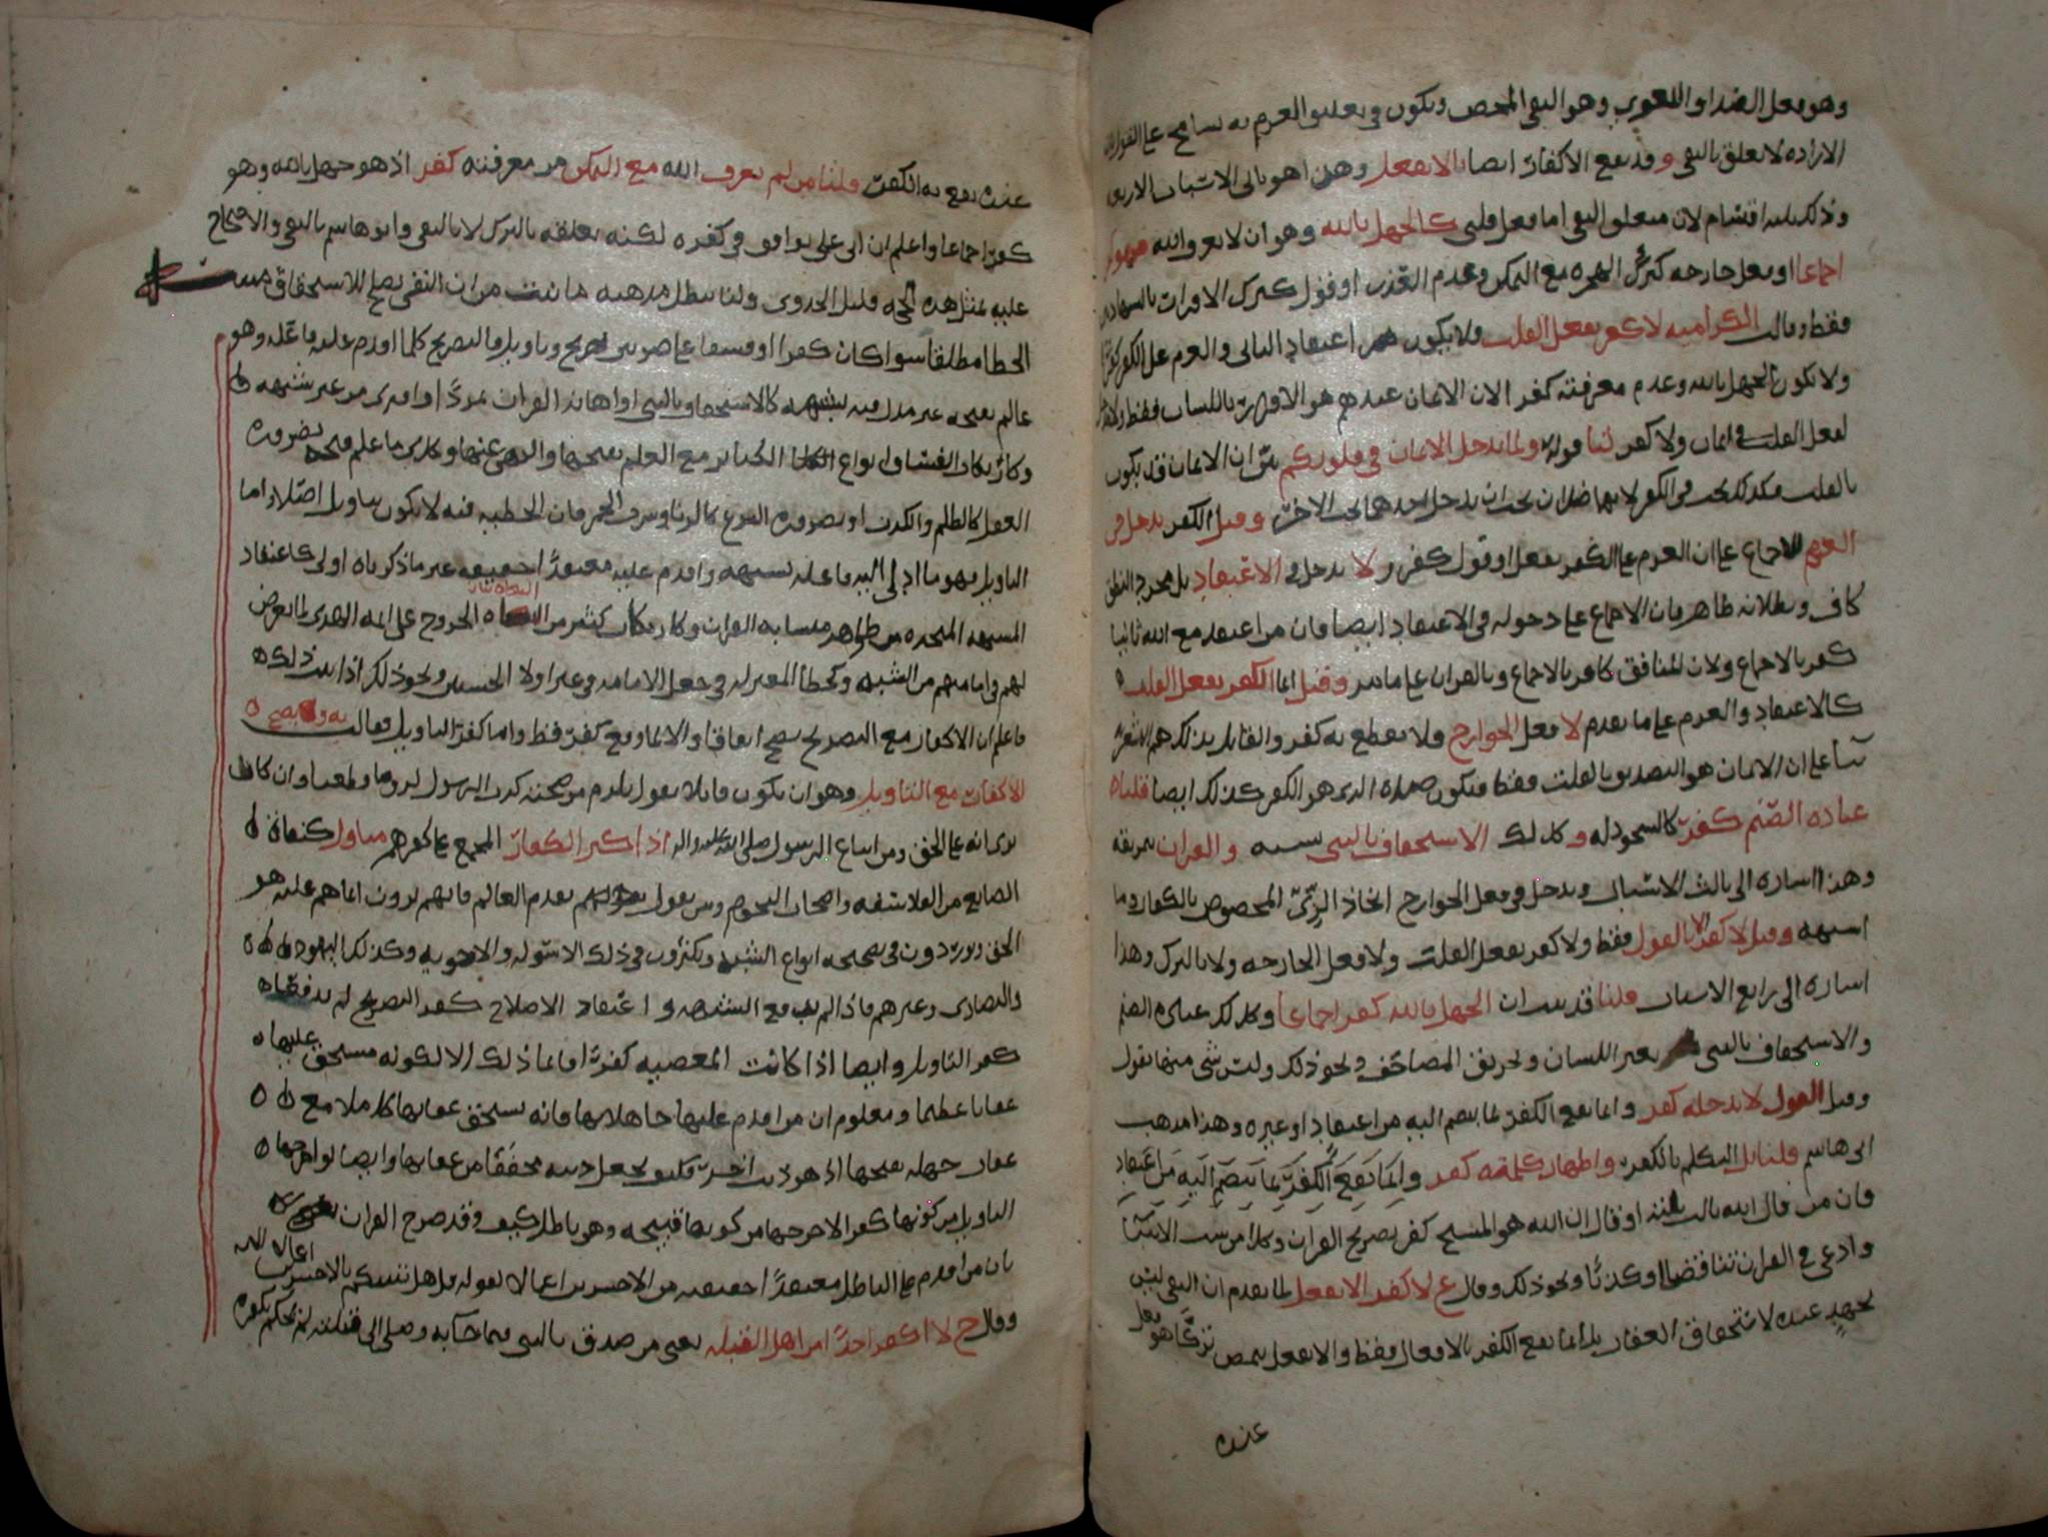 وهو فعل الضد او اللغوي وهو النفي المحض ويكون في تعليق العزم به تسامح على القول بان
الارادة لا تعلق بالنفي وقد يقع الاكفار ايضا بالا يفعل وهذا هو ثاني الاسباب الاربعة
وذلك ثلثة اقسام لان متعلق النفي اما فعل قلبي كالجهل بالله وهو ان لا يعرف الله فهو كفر
اجماعا او فعل جارحة كترك الهجرة مع التمكن وعدم العذر او قول كترك الاقرار بالشهادتين
فقط وقالت الكرامية لا كفر بفعل القلب فلا يكون اعتقاد الثاني والعزم على الكفر كفرا
ولا يكون الجهل بالله وعدم معرفته كفر الان الايمان عندهم هو الاقرار باللسان فقط ولا
لفعل القلب في ايمان ولا كفر لنا قوله ولما يدخل الايمان في قلوبكم بين ان الايمان قد يكون
بالقلب فكذلك يجب في الكفر لانهما ضدان يجب ان يدخل احدهما بحيث الاخر وقيل الكفر يدخل في
العزم للاجماع على ان العزم على الكفر بفعل او قول كفر ولا يدخل في الاعتقاد بل مجرد النطق
كاف وبطلانه ظاهر فان الاجماع على دخوله في الاعتقاد ايضا فان من اعتقد مع الله ثانيا
كفر بالاجماع ولان المنافق كافر بالاجماع وبالقران على ما مر وقيل انما الكفر بفعل القلب
كالاعتقاد والعزم على ما تقدم لا فعل الجوارح فلا يقطع به كفر والقايل بذلك هم الاشعرية
بنا على ان الايمان هو التصديق بالقلب فقط فيكون ضده الذي هو الكفر كذلك ايضا قلنا
عبادة الصنم كفر كالسجود له وكذلك الاستخفاف بالنبي سبه والقران تمزيقه
وهذا اشارة الى ثالث الاسباب ويدخل في فعل الجوارح اتخاذ الزي المخصوص بالكفار وما
اشبهه وقيل لا كفر الا بالقول فقط ولا كفر بفعل القلب ولا فعل الجارحة ولا بالترك وهذا
اشارة الى رابع الاسباب قلنا قد بينا ان الجهل بالله كفر اجماعا وكذلك عبادة الصنم
والاستخفاف بالنبي بغير اللسان وتحريق المصاحف ونحو ذلك وليس شي منها بقول
وقيل القول لا يدخله كفر وانما يقع الكفر لما ينضم اليه من اعتقاد او غيره وهذا مذهب
ابي هاشم قلنا بل التكلم بالكفر واظهار كلمته كفر وانما يقع الكفر بما ينضم اليه من اعتقاد
فان من قال الله ثالث ثلثة او قال ان الله هو المسيح كفر بصريح القران وكذا من سب الانبيا
وادعى في القران تناقضا او كذبا ونحو ذلك وقال ع لا كفر الا بفعل لما تقدم ان النفي ليس
بجهة عنده لاستحقاق العقاب بل انما يقع الكفر بالافعال فقط والا يفعل يتضمن تركا هو فعل
عنده
عنده يقع به الكفر قلنا من لم يعرف الله مع التمكن من معرفته كفر اذ هو جهل بالله وهو
كفر اجماعا واعلم ان ابي علي يوافق في كفره لكنه يعلقه بالترك لا بالنفي وابو هاشم بالنفي والاحتجاج
عليه بمثل هذه الحجة قليل الجدوى ولنا يبطل مذهبه ما ثبت من ان النفي يصلح للاستحقاق
الخطا مطلقا سوا كان كفرا او فسقا على ضربين صريح وتاويل فالتصريح كلما اقدم عليه فاعله وهو
عالم بقبحه غير مدل فيه بشبهة كالاستخفاف بالنبي او اهانة القران تمردا او افترى من غير شبهة
وكارتكاب الفساق انواع الكبائر مع العلم بقبحها والنهي عنها وكل ما علم قبحه بضرورة
العقل كالظلم والكذب او بضرورة الشرع كالزنا وشرب الخمر فان الخطية فيه لا يكون بتاويل اصلا واما
التاويل فهو ما ادى اليه فاعله بشبهة واقدم عليه معتقدا احقيقه غير ما ذكرناه اولى كاعتقاد
المشبهة المتخذة من ظواهر متشابه القران وكارتكاب كثير من البغاة الخروج على ايمة الهدى لما يعرض
لهم في امامتهم من الشبه وكخطأ المعتزلة في جعل الامامة في غير اولاد الحسنين ونحو ذلك اذا بينت ذلك
فاعلم ان الاكفار مع التصريح يصح اتفاقا والايما ويقع كفر قط واما كفر التاويل فقالت به ويصح
الاكفار مع التاويل وهو ان يكون قايلا بقول يلزم من صحته كذب الرسول لزوما وقطعا وان كان
يرى انه على الحق ومن اتباع الرسول صلى الله عليه واله اذ اكثر الكفار المجمع على كفرهم متاول كنفاة
الصانع من الفلاسفة واصحاب النجوم ومن يقول بقدم العالم فانهم يرون انما هم عليه هو
الحق ويوردون في صحته انواع الشبه ويكثرون في ذلك الاسولة والاجوبة وكذلك اليهود
والنصارى وغيرهم فاذا لم يقع مع الشبهة واعتقاد الاصلاح كفر التصريح لم يدفعاه
كفر التاويل وايضا اذا كانت المعصية كفرا فانما ذلك الا لكونه مستحق عليها
عقابا عظيما ومعلوم ان من اقدم عليها جاهلا بها فانه يستحق عقابها كاملا مع
عقاب جهله بقبحها اذ هو ذنب اخر فكيف يجعل ذنبه مخففا من عقابها وايضا لو اخرجها
التاويل من كونها كفر الاخرجها من كونها قبيحة وهو باطل كيف وقد صرح القران
بان من اقدم على الباطل معتقدا احقيقه من الاخسرين اعمالا لقوله قل هل ننبيكم بالاخسرين اعمالا الاية
وقال ح لا اكفر احدا من اهل القبلة يعني من صدق بالنبي فيما جا به وصلى الى قبلته لم نحكم بكفره